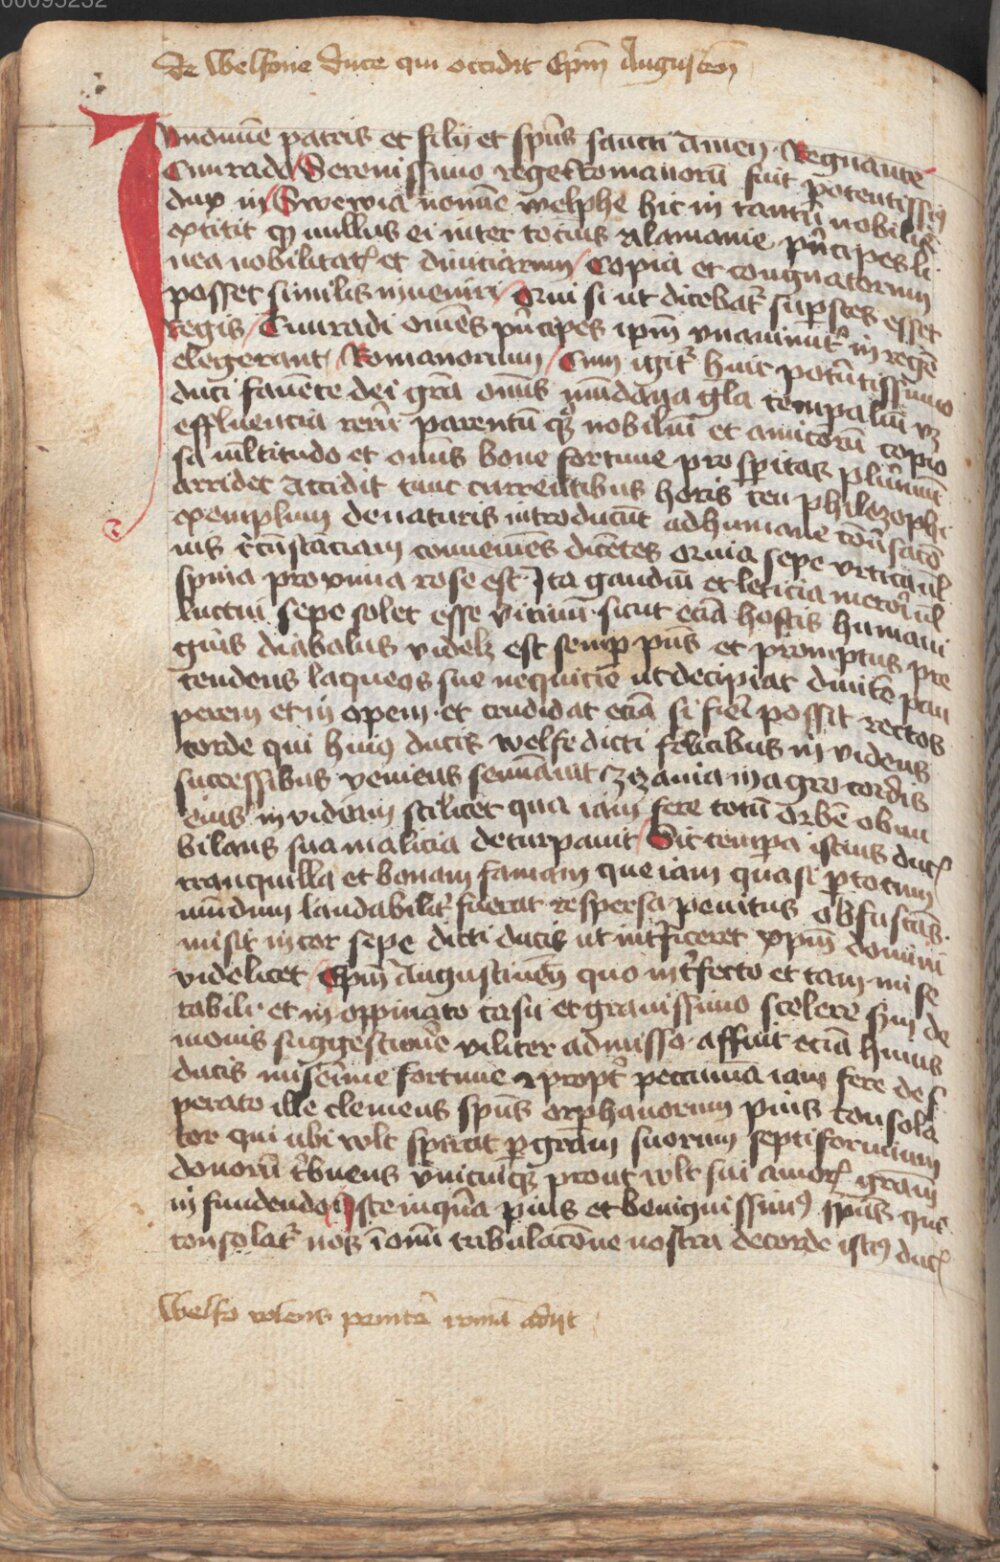 00095232
de Welfone duce qui occidit Ep̄m Augusten̄
In nomīe patris et filii et sp̄us sancti Amen. Regnante
Cunrado Serenissimo rege Romanorū fuit potentissim9
dux in Swewia nomīe welphe hic in tantū nobilis
extitit qꝫ nullus ei inter totius Alamanie p̄ncipes li
nea nobilitat̄ et diuiciarum Copia et congnatorum
posset similis inveniri Cui si ut dicebat᷑ sup̄stes esset
regis Cunradi om̄es p̄ncipes ip̄m vnanimit᷑ in regē
elegerant Romanorum Cum igit᷑ huic potētissimo
duci fauēte dei gr̄a om̄is mūdana gl̄a temp̱aliū vꝫ
effluencia rerū parentū qꝫ nobiliū et amicorū copio
sa m̄ltitudo et om̄is bone fortune prosp̱itas plurimū
arridet accidit tunc currentibus horis ceu philozophi
exemplum de naturis introducūt ad humane cōu̓sacō
nis c̓cūstāciam conueniēs dicētes Cui̓a sepe vrtica ul̄
spina proxima rose est Ita gaudiū et leticia merori ul̄
luctui sepe solet esse vicinū sicut eciā hostis humani
gn̄is diabolus videlꝫ est semp̱ p̄ns et promptus pre
tendens laqueos sue nequicie ut decipiat diuitē pau
perem et in opem et trudidat eciā si fieri possit rectos
corde qui hui9 ducis welfe dicti felicibus in videns
successibus veniens semīauit zizania in agro cordis
eius in vidiam scilicet qua iam fere totū orbē obnu
bilans sua malicia deturpauit Sic temp̱a istius duc̄
tranquilla et bonam famam que iam quasi p̱ totum
mūdum laudabilit᷑ fuerat respersa penitus obfuscās
misit in cor sepe dicti ducis ut int̓ficeret xp̄m domini
videlicet Ep̄m Augustinēn quo int̓fecto et tam mise
rabili et in oppinato casu et grauissimo scelere sym de
monis suggestione viliter admisso affuit eciā huius
ducis miserime fortune et propt᷑ peccunīa iam fere des
perato ille clemens sp̄us orphanorum pius consola
tor qui ubi wlt spirat p̱ gr̄am suorum septiformium
donorū t̓buens vnicuiqꝫ prout wlt sui amor̄ gr̄am
in fundendo Iste inquā pius et benignissim9 sp̄us qui
consolat᷑ nos ī om̄i tribulacōne nostra de corde isti9 duc̄
Welfo volens penitē romā adijt